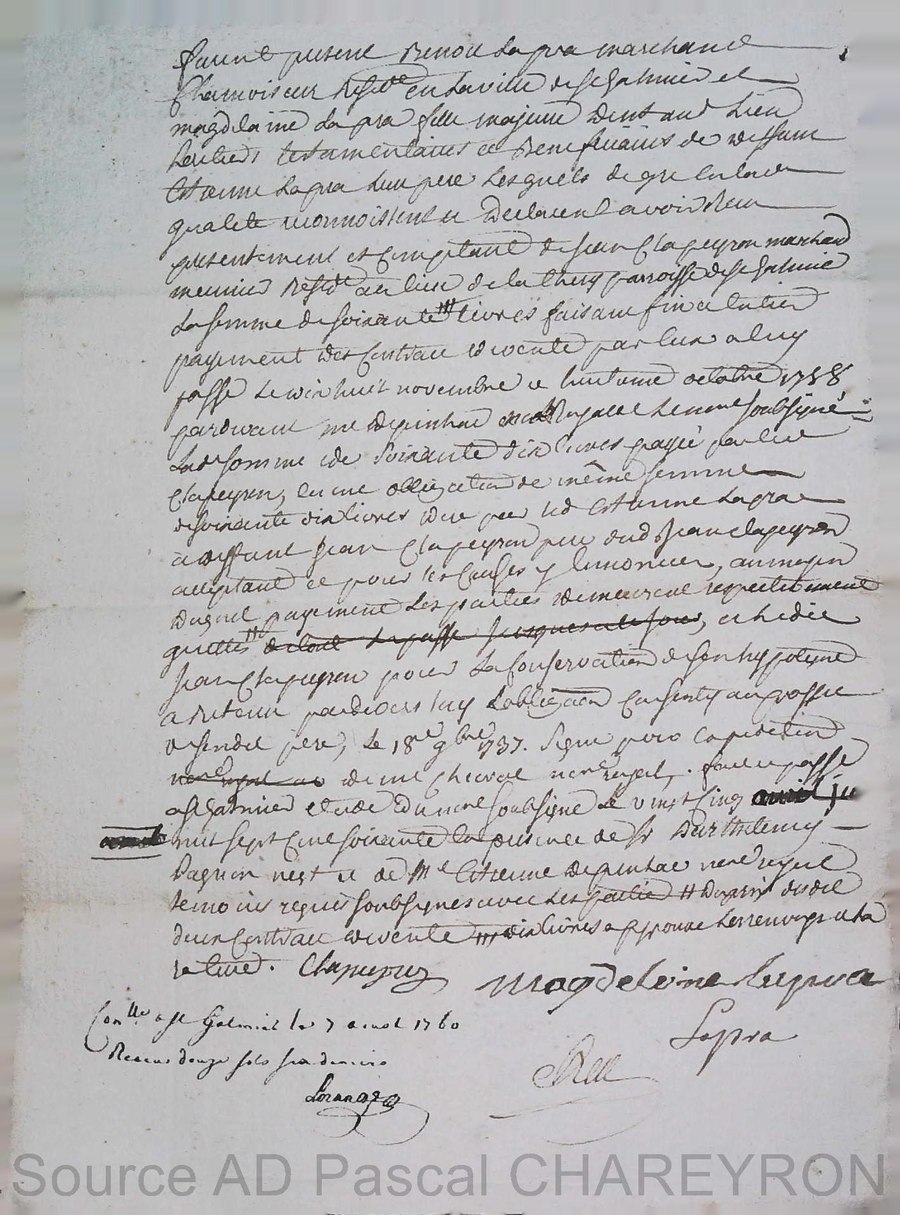 furent présent Benoit Lapra marchand
Chamoiseur Residt en La ville de St Galmier et
magdelaine La pra fille majeure dem.t aud Lieu
heritiers testamentaires et Beneficiaires de deffunt
Estienne Lapra Leur pere Lesquels de gre en lad
qualité reconnoissent et declarent avoir Reçu
presentement et comptant de Jean Clapeyron marchand
meunier Residt au lieu de la Thery parroisse de St Galmier
La somme de soixante # Livres faisant fin et entier
payement du Contrat de vente par eux a luy
passé Le dix huit novembre et huitieme octobre 1758
pardevant me depinhac Royal Le nore soubsigné
Lad somme de soixante dix Livres payée par led
Clapeyron, en une obligation de même somme
de soixante dix livres due par led Estienne Lapra
a deffunt Jean Clapeyron pere dud Jean Clapeyron
acceptant et pour les Causes y Enoncées, au moyen
duquel payement Les parties demeurent respectivement
quittes # de tout Le passé jusques a ce jour, et ledit
Jean Clapeyron pour La Conservation de son hypoteque
a Retenu pardevers luy Lobligation Consentie au proffit
de sondit pere, Le 18e 9bre 1737. Signé pour Expedition
nore royal de me Chervat nore royal. fait et passé
a St Galmier Etude du nore soubsigné Le vingt cinq
mil sept cent soixante En presence de Sr Barthelemy
Pagnon et de Me Etienne Depinhac nore royal
temoins requis soubsignes avec Les parties # dudit
dun Contrat de vente ### dix livres approuvé Les renvoys et la
rature. Clapeyron
Magdeleine Lapra
Lapra
Conllé a St Galmier le 7 aout 1760
Receu douze sols